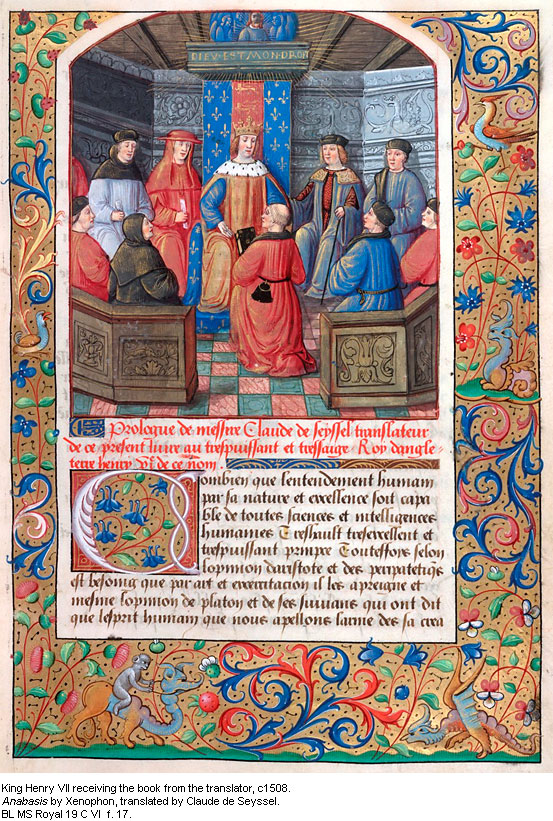 DIEV·EST·MON·DROI
Prologue de messire Claude de seyssel translateur
de ce present livre au trespuissant et tressaige Roy dangle-
terre henry VIIe de ce nom.
Combien que lentendement humain
par sa nature et excellence soit capa
ble de toutes sciences et intelligences
humaines Treshault tresexcellent et
trespuissant prince Touteffois selon
lopinion daristote et des peripatetiqs
est besoing que par art et exercitacion il les apreigne et
mesme lopinion de platon et de ses suivans qui ont dit
que lesprit humain que nous apellons larme des sa crea
King Henry VII receiving the book from the translator, c1508.
Anabasis by Xenophon, translated by Claude de Seyssel.
BL MS Royal 19 C VI f. 17.